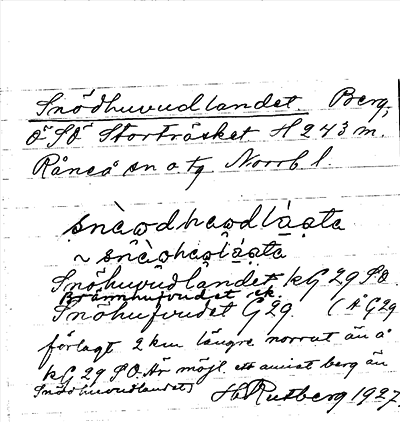 Snödhuvudlandet. Berg,
Ö SÖ Storträsket H 243 m.
Råneå sn o tg Norrb l.
snàodhaodlásta
~ snàohaolásta
Snöhuvudlandet kG 29 SO.
Brännhufvudet ik.
Snöhufvudet G 29. (A G 29
förlagt 2 km längre norrut än å
kG 29 SO. Är möjl. ett annat berg än
Snödhuvudlandet)
H. Rutberg 1927.